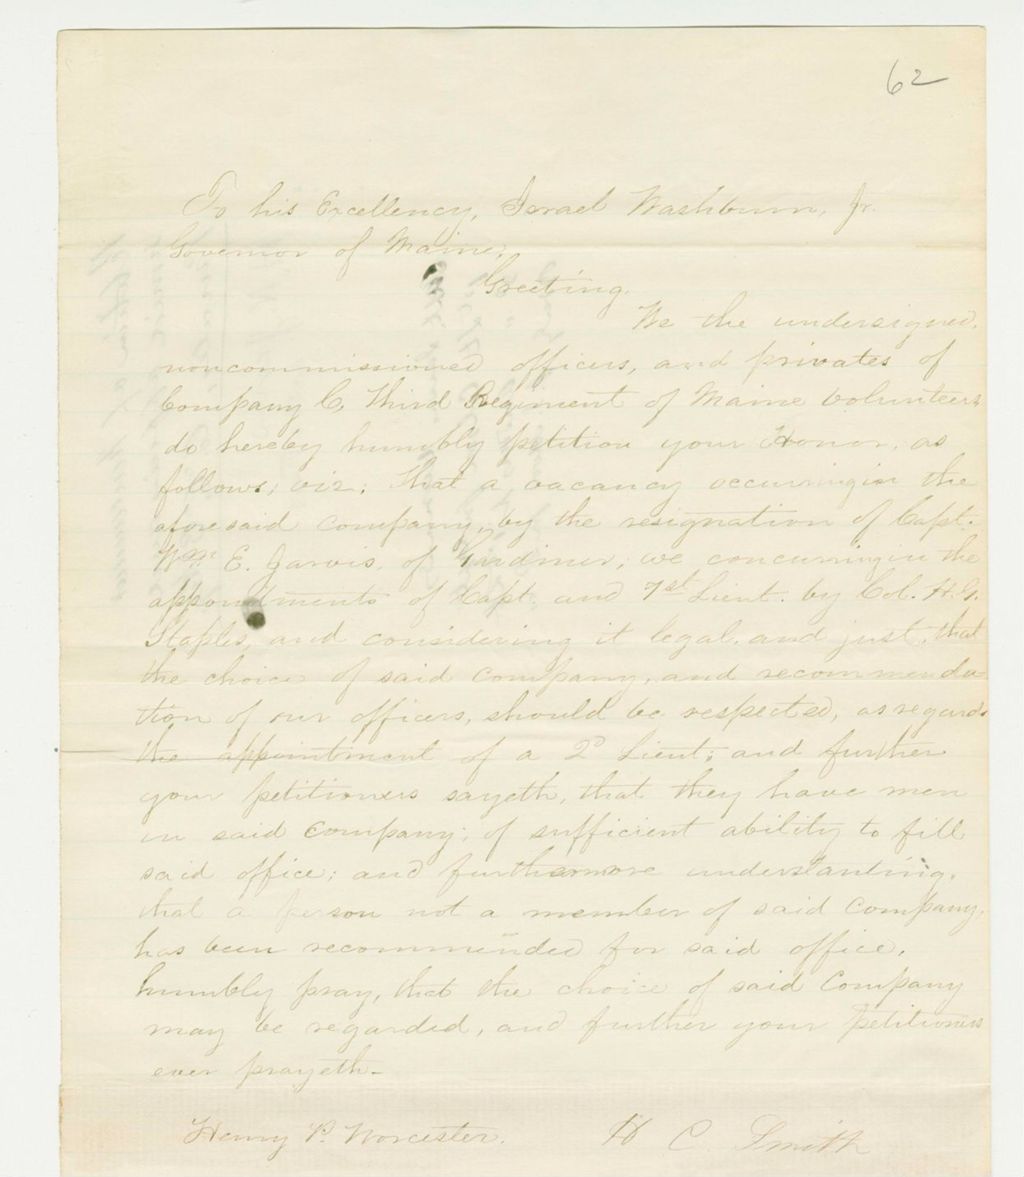 62
To his Excellency, Israel Washburn, Jr.
Governor of Maine,
Greeting.
We the undersigned,
noncommissioned officers, and privates of
Company C, Third Regiment of Maine Volunteers,
do hereby humbly petition your Honor, as
follows; viz; that a vacancy occurring in the
aforesaid company, by the resignation of Capt.
Wm E. Jarvis, of Gardiner; we concurring in the
appointments of Capt. and 1st Lieut. by Col. H. G.
Staples, and considering it legal and just, that
the choice of said Company, and recommenda
tion of our officers, should be respected, as regards
the appointment of a 2d Lieut; and further
your petitioners sayeth, that they have men
in said company, of sufficient ability to fill
said office; and furthermore understanting,
that a person not a member of said Company,
has been recommended for said office,
humbly pray, that the choice of said Company
may be regarded, and further your petitioners
ever prayeth-
Henry P. Worcester. H C. Smith